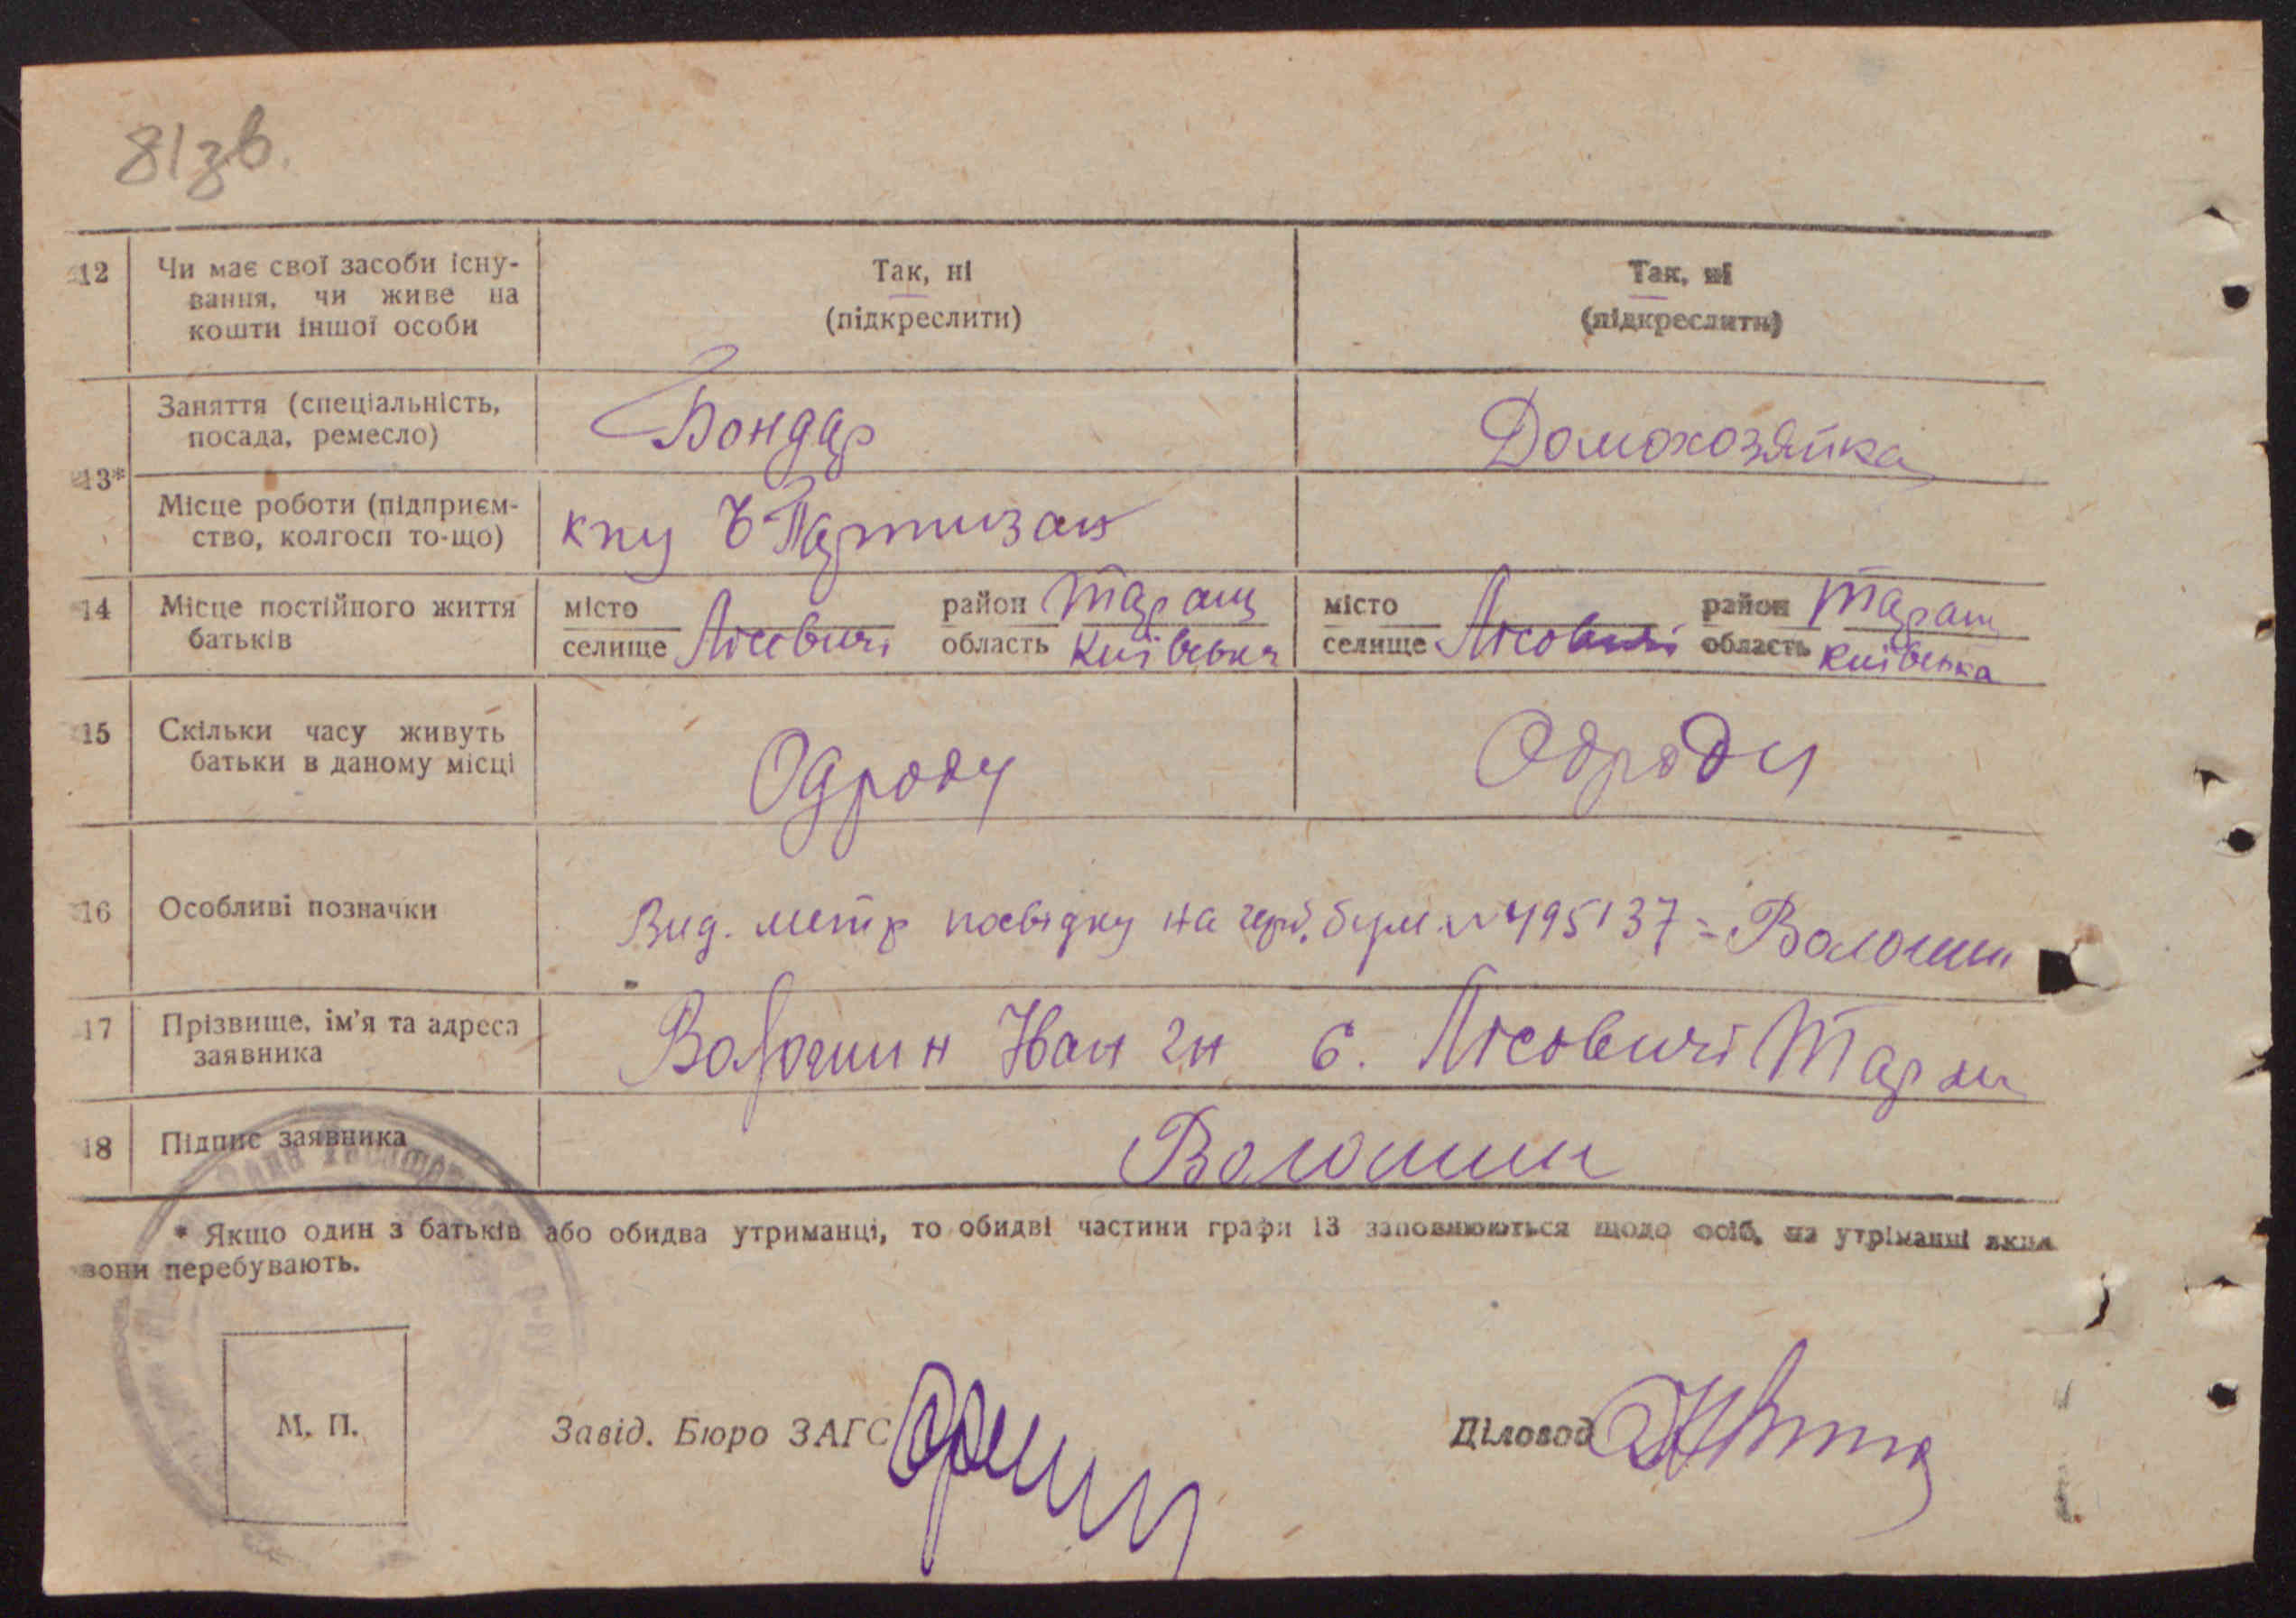 81зв.
12 Чи має свої засоби існу-
вання, чи живе на
кошти іншої особи
Так, ні
(підкреслити)
Так, ні
(підкреслити)
13*
Заняття (спеціальність,
посада, ремесло)
Бондар
Домохозяйка
Місце роботи (підприєм-
ство, колгосп то-що)
Партизан
14 Місце постійного життя
батьків
місто
селище Лісовичі
район Таращ
область Київська
місто
селище Лісовичі
район Таращ
область Київська
15 Скільки часу живуть
батьки в даному місці
Одроду
Одроду
16 Особливі позначки
Вид. метр посвідку на герб. бум № 495137 = Волошин
17 Прізвище, ім'я та адреса
заявника
Волошин Иван Гн с. Лісовичі Таращ
18 Підпис заявника
Волошин
* Якщо один з батьків або обидва утриманці, то обидві частини графи 13 заповнюються щодо осіб, на утріманні яких
вони перебувають.
М. П.
Завід. Бюро ЗАГС
Діловод